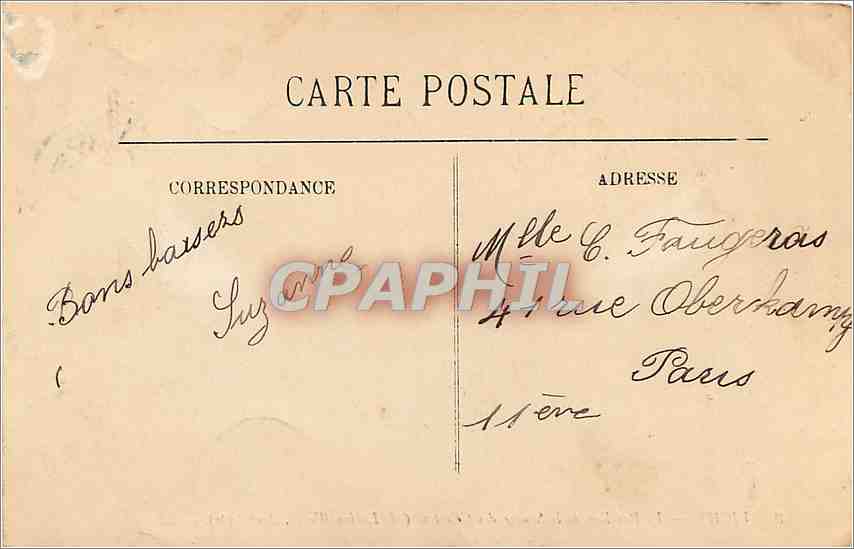 CARTE POSTALE
CORRESPONDANCE
ADRESSE
Bons baisers
Suzanne
CPAPHIL
Mlle C. Faugeras
41 rue Oberkampf
Paris
11ème